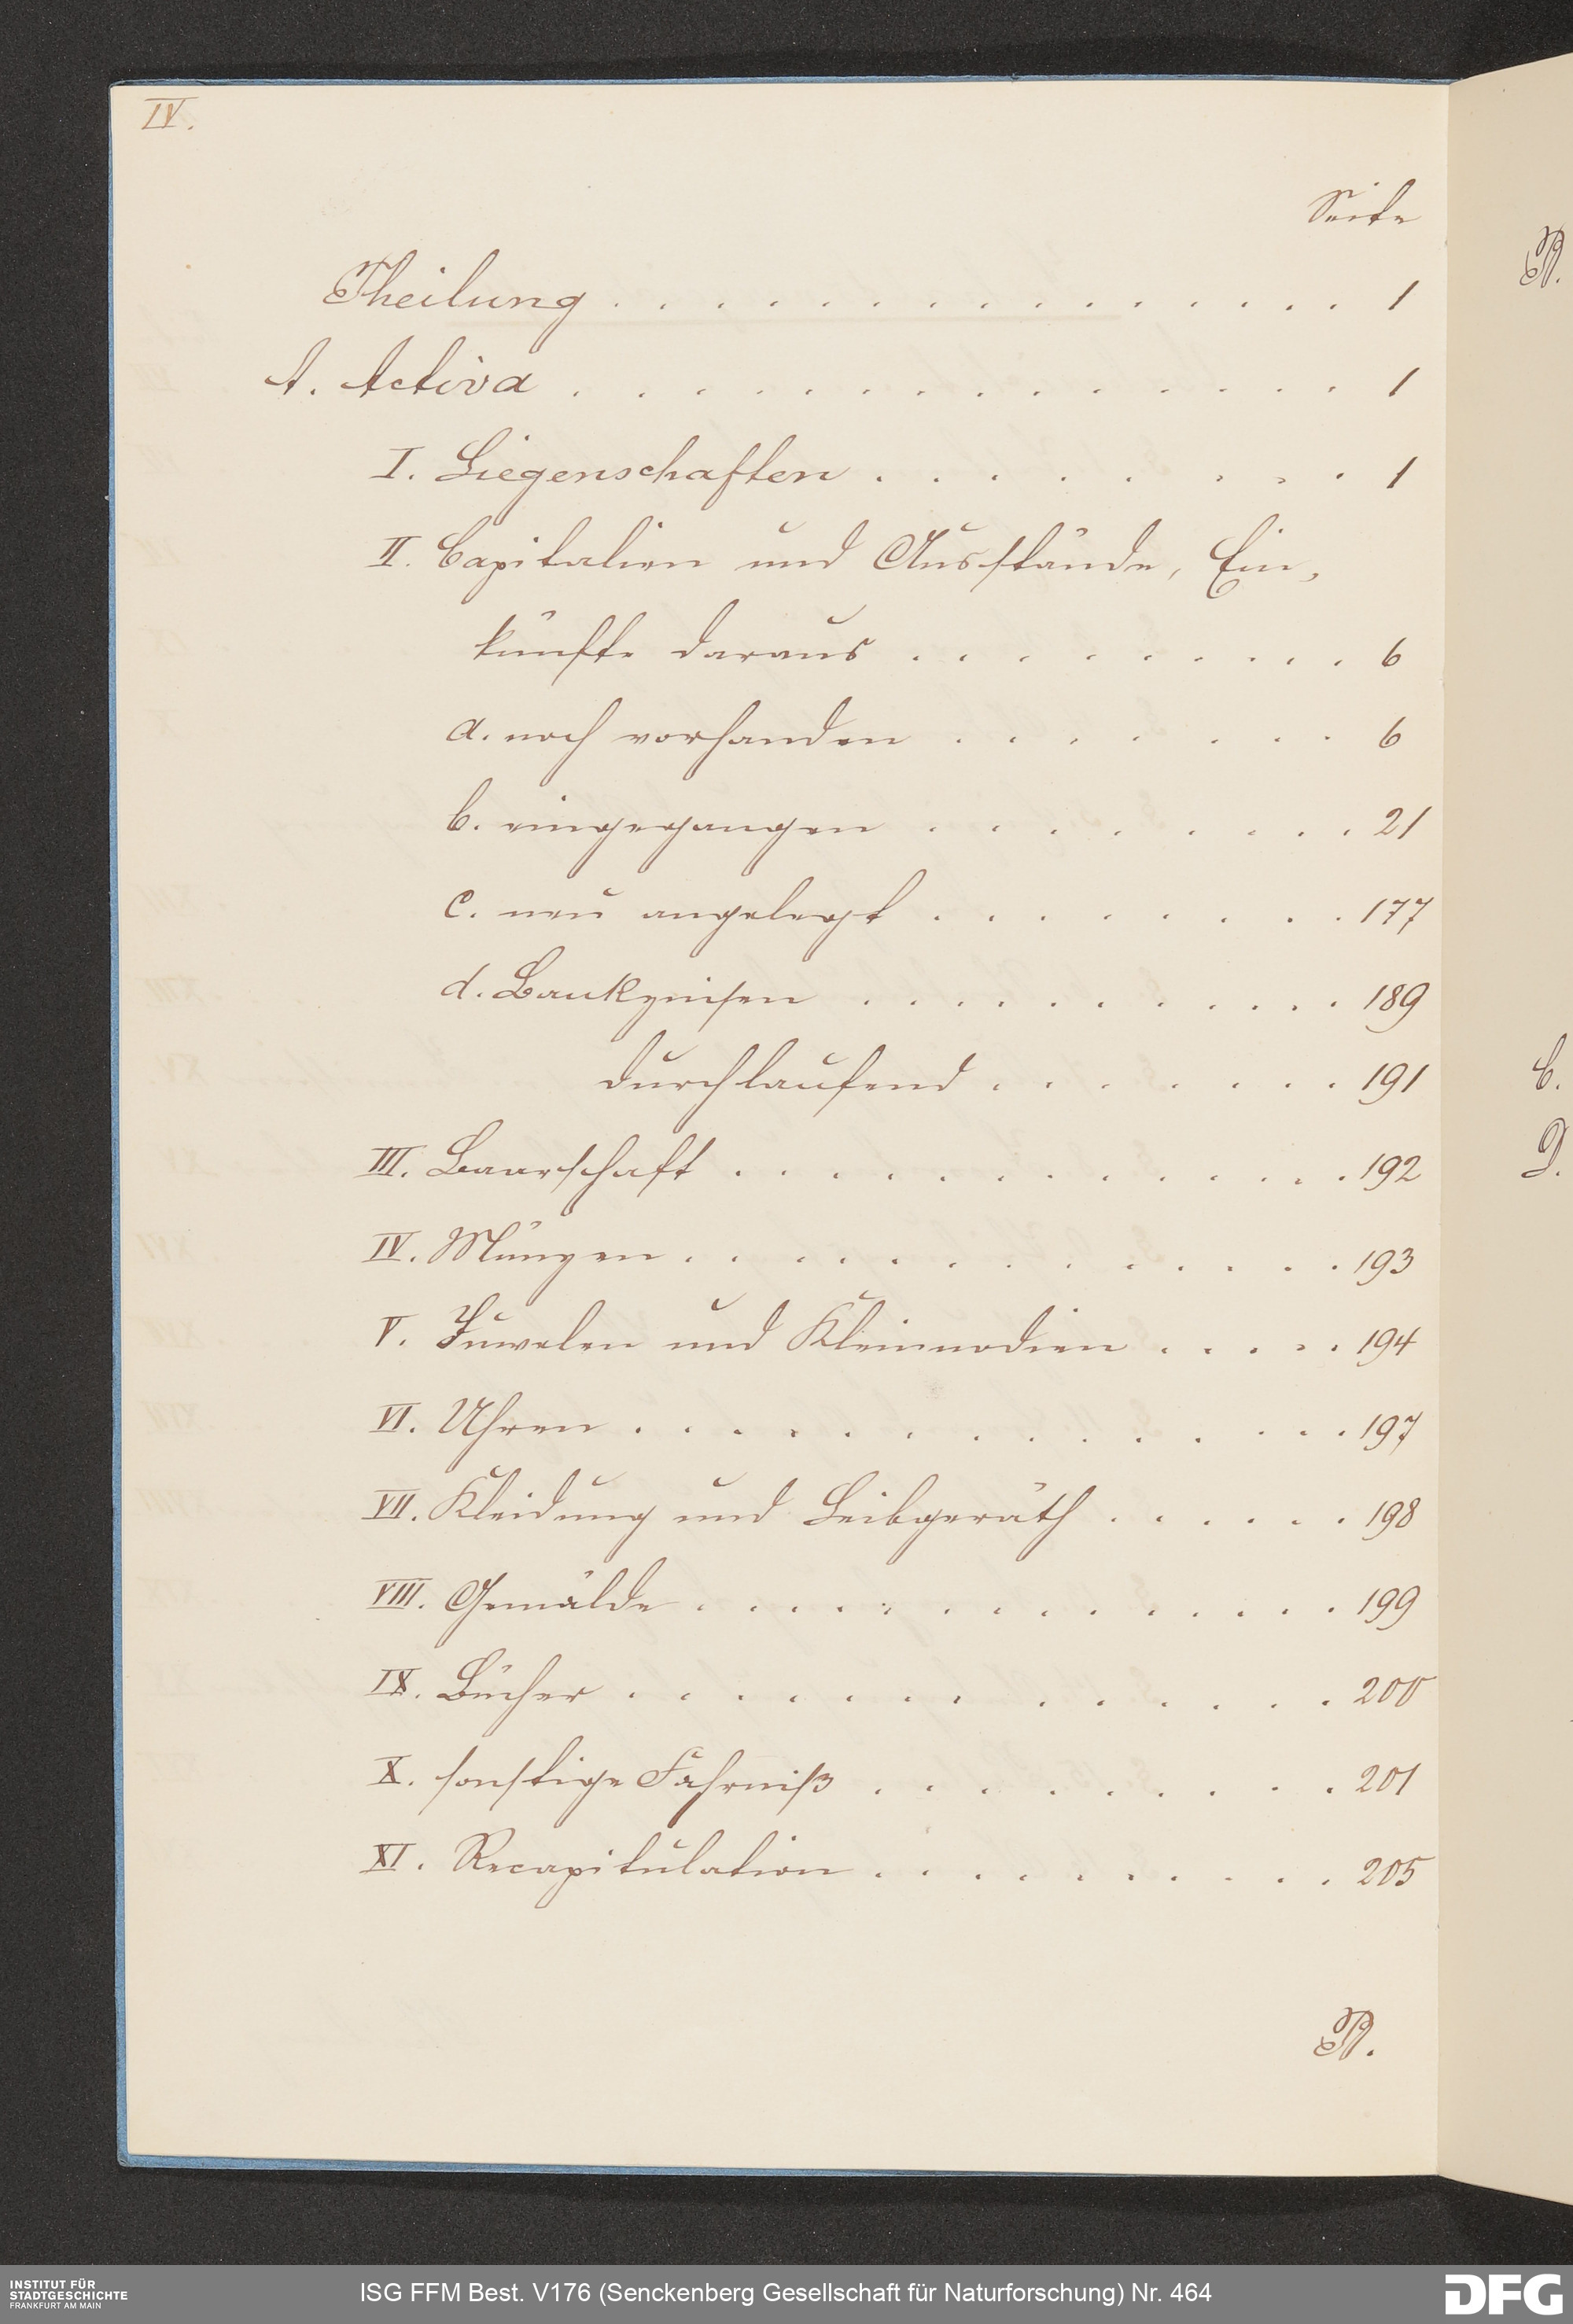 IV.
Seite
Theilung . . . . . . . . . . . . . . 1
A. Activa . . . . . . . . . . . . . . 1
I. Liegenschaften . . . . . . . . 1
II. Capitalien und Ausstände, Ein-
künfte daraus . . . . . . . . . 6
a. noch vorhanden . . . . . . . 6
b. eingegangen . . . . . . . . 21
c. neu angelegt . . . . . . . . 177
d. Bankzinsen . . . . . . . . . . 189
durchlaufend . . . . . . . 191
III. Baarschaft . . . . . . . . . . . . 192
IV. Münzen . . . . . . . . . . . . . 193
V. Juwelen und Kleinnodien . . . . . 194
VI. Uhren . . . . . . . . . . . . . . 197
VII. Kleidung und Leibgeräth . . . . . . 198
VIII. Gemälde . . . . . . . . . . . . . 199
IX. Bücher . . . . . . . . . . . . . 200
X. sonstige Fahrniß . . . . . . . . . 201
XI. Recapitulation . . . . . . . . . . 205
B.
B.
C.
D.
INSTITUT FÜR
STADTGESCHICHTE
FRANKFURT AM MAIN
ISG FFM Best. V176 (Senckenberg Gesellschaft für Naturforschung) Nr. 464
DFG